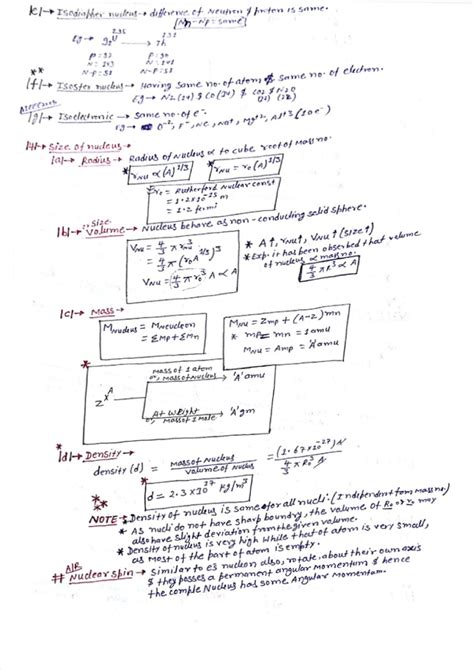 |e|→ Isodiapher nucleus → difference of Neutron & proton is same.
[Nn - Np = same]
Eg → 92U235 → Th231
P = 92 P = 90
N = 143 N = 141
N-P = 51 N-P = 51
** |f|→ Isoster nucleus → Having same no. of atom, & same no. of electron.
Eg → N2 (14) & CO (14) & CO2 & N2O
(22) (22)
|g|→ Isoelectronic → same no. of e-.
Eg → O-2, F-, Ne, Na+, Mg+2, Al+3 (10e-)
|4|→ Size of nucleus →
|a|→ Radius → Radius of Nucleus ∝ to cube root of Mass no.
* rNu ∝ (A)1/3
* rNu = r0 (A)1/3
r0 = Rutherford Nuclear const
= 1.2×10-15 m
= 1.2 fermi
|b|→ Size Volume → Nucleus behave as non-conducting solid sphere.
VNu = 4/3 π rNu3
= 4/3 π (r0A1/3)3
VNu = 4/3 π r03 A ∝ A
* A↑, rNu↑, VNu↑ (size↑)
* Exp. it has been observed that volume
of nucleus ∝ mass no.
4/3 πR3 ∝ A
|c|→ Mass →
MNucleus = MNeucleon
= ΣMp + ΣMn
MNu = Zmp + (A-Z)mn
* mp = mn = 1amu
MNu = Amp = 'A'amu
* ZXA
Mass of 1 atom or, Mass of Nucleus → 'A' amu
At Weight or, Mass of 1 Mole → 'A' gm
* |d|→ Density →
density (d) = Mass of Nucleus / Volume of Nucleus = (1.67×10-27)A / 4/3 πR03 A
d = 2.3×1017 kg/m3
NOTE → Density of nucleus is same for all nucli. (Independent from Mass no.)
* As nucli do not have sharp boundry, the volume of R0 or r0 may
also have slight deviation from the given volume.
* Density of nucleus is very high while that of atom is very small,
as most of the part of atom is empty.
## Nuclear spin → Similar to e3 nucleon also, rotate about their own axis
& they posses a permanent angular Momentum & hence
the comple Nucleus has some Angular Momentum.